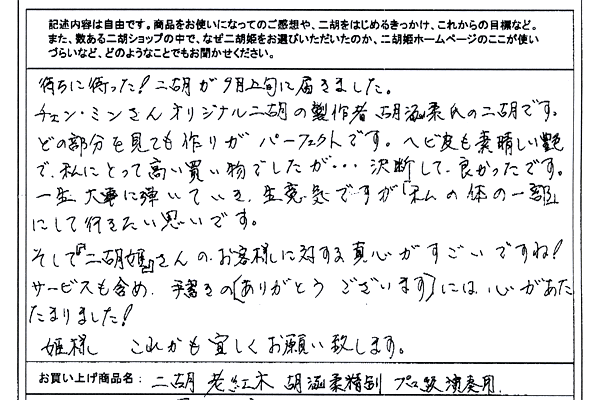 記述内容は自由です。商品をお使いになってのご感想や、二胡をはじめるきっかけ、これからの目標など。
また、数ある二胡ショップの中で、なぜ二胡姫をお選びいただいたのか、二胡姫ホームページのここが使い
づらいなど、どのようなことでもお聞かせください。
待ちに待った！二胡が9月上旬に届きました。
チェン・ミンさんオリジナル二胡の製作者 胡涵柔氏の二胡です。
どの部分を見ても作りがパーフェクトです。ヘビ皮も素晴しい艶
で、私にとって高い買い物でしたが・・・決断して良かったです。
一生大事に弾いていき、生意気ですが「私の体の一部」
にして行きたい思いです。
そして『二胡姫』さんの、お客様に対する真心がすごいですね！
サービスも含め、手書きの〔ありがとうございます〕には、心があた
たまりました！
姫様 これかも宜しくお願い致します。
お買い上げ商品名： 二胡 老紅木 胡涵柔精制 プロ級演奏用